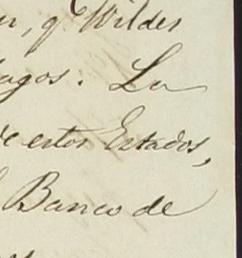 q.º Wilder
agos. La
de estos Estados,
Banco de